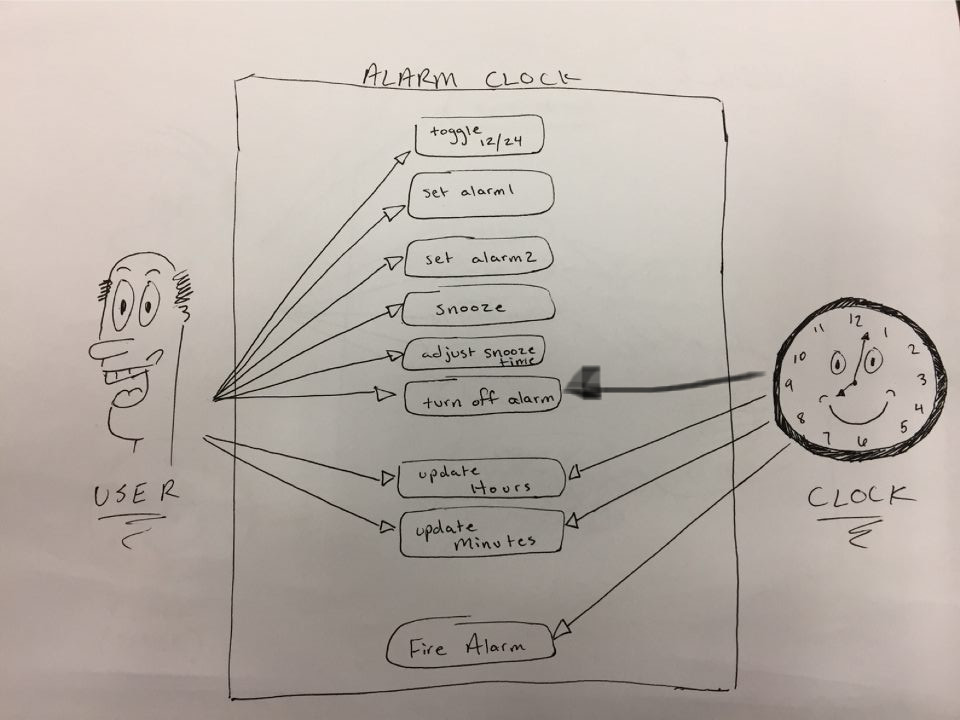 ALARM CLOCK
toggle
12/24
set alarm1
set alarm2
snooze
adjust snooze
time
turn off alarm
update
Hours
update
Minutes
Fire Alarm
USER
CLOCK
12
1
2
3
4
5
6
7
8
9
10
11